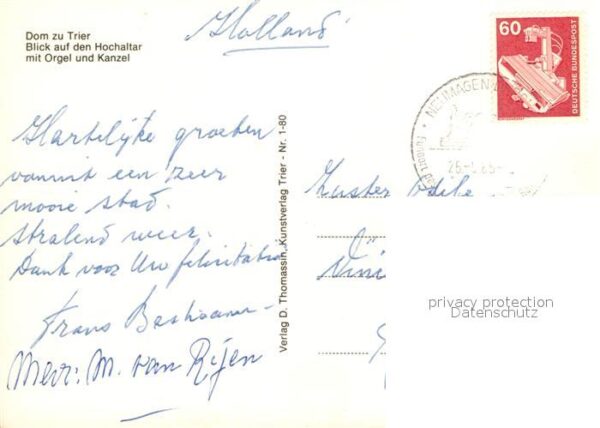 Dom zu Trier
Blick auf den Hochaltar
mit Orgel und Kanzel
Holland
60
DEUTSCHE BUNDESPOST
NEUMAGEN-
Hartelijke groeten
vanuit een zeer
mooie stad.
Stralend weer.
Dank voor Uw felicitatie
Frans
Mevr. M. van Rijen
Verlag D. Thomassin, Kunstverlag Trier - Nr. 1-80
Zuster
privacy protection
Datenschutz